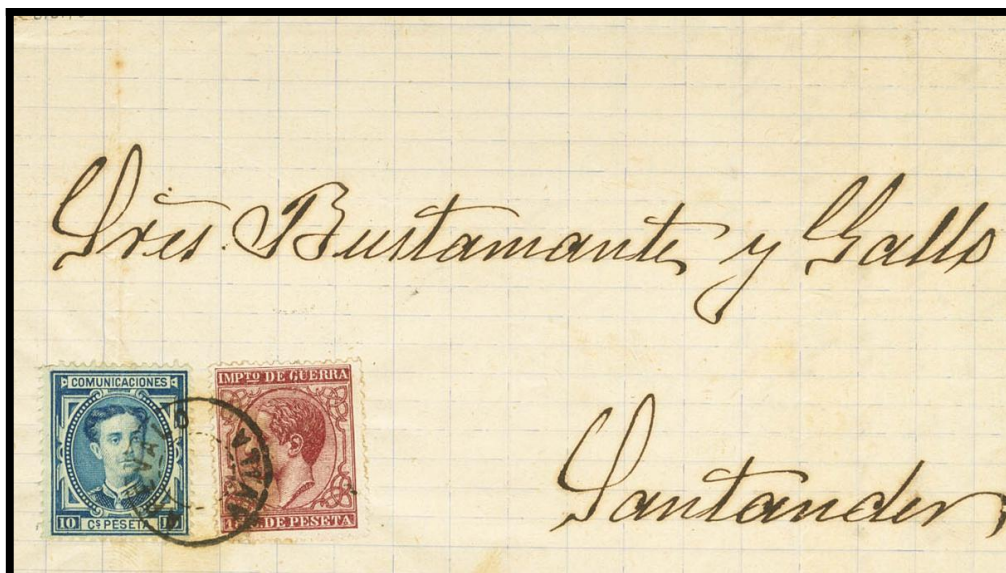 Sres Bustamante y Gallo
Santander
COMUNICACIONES
10 Cs PESETA 10
IMPTO DE GUERRA
DE PESETA